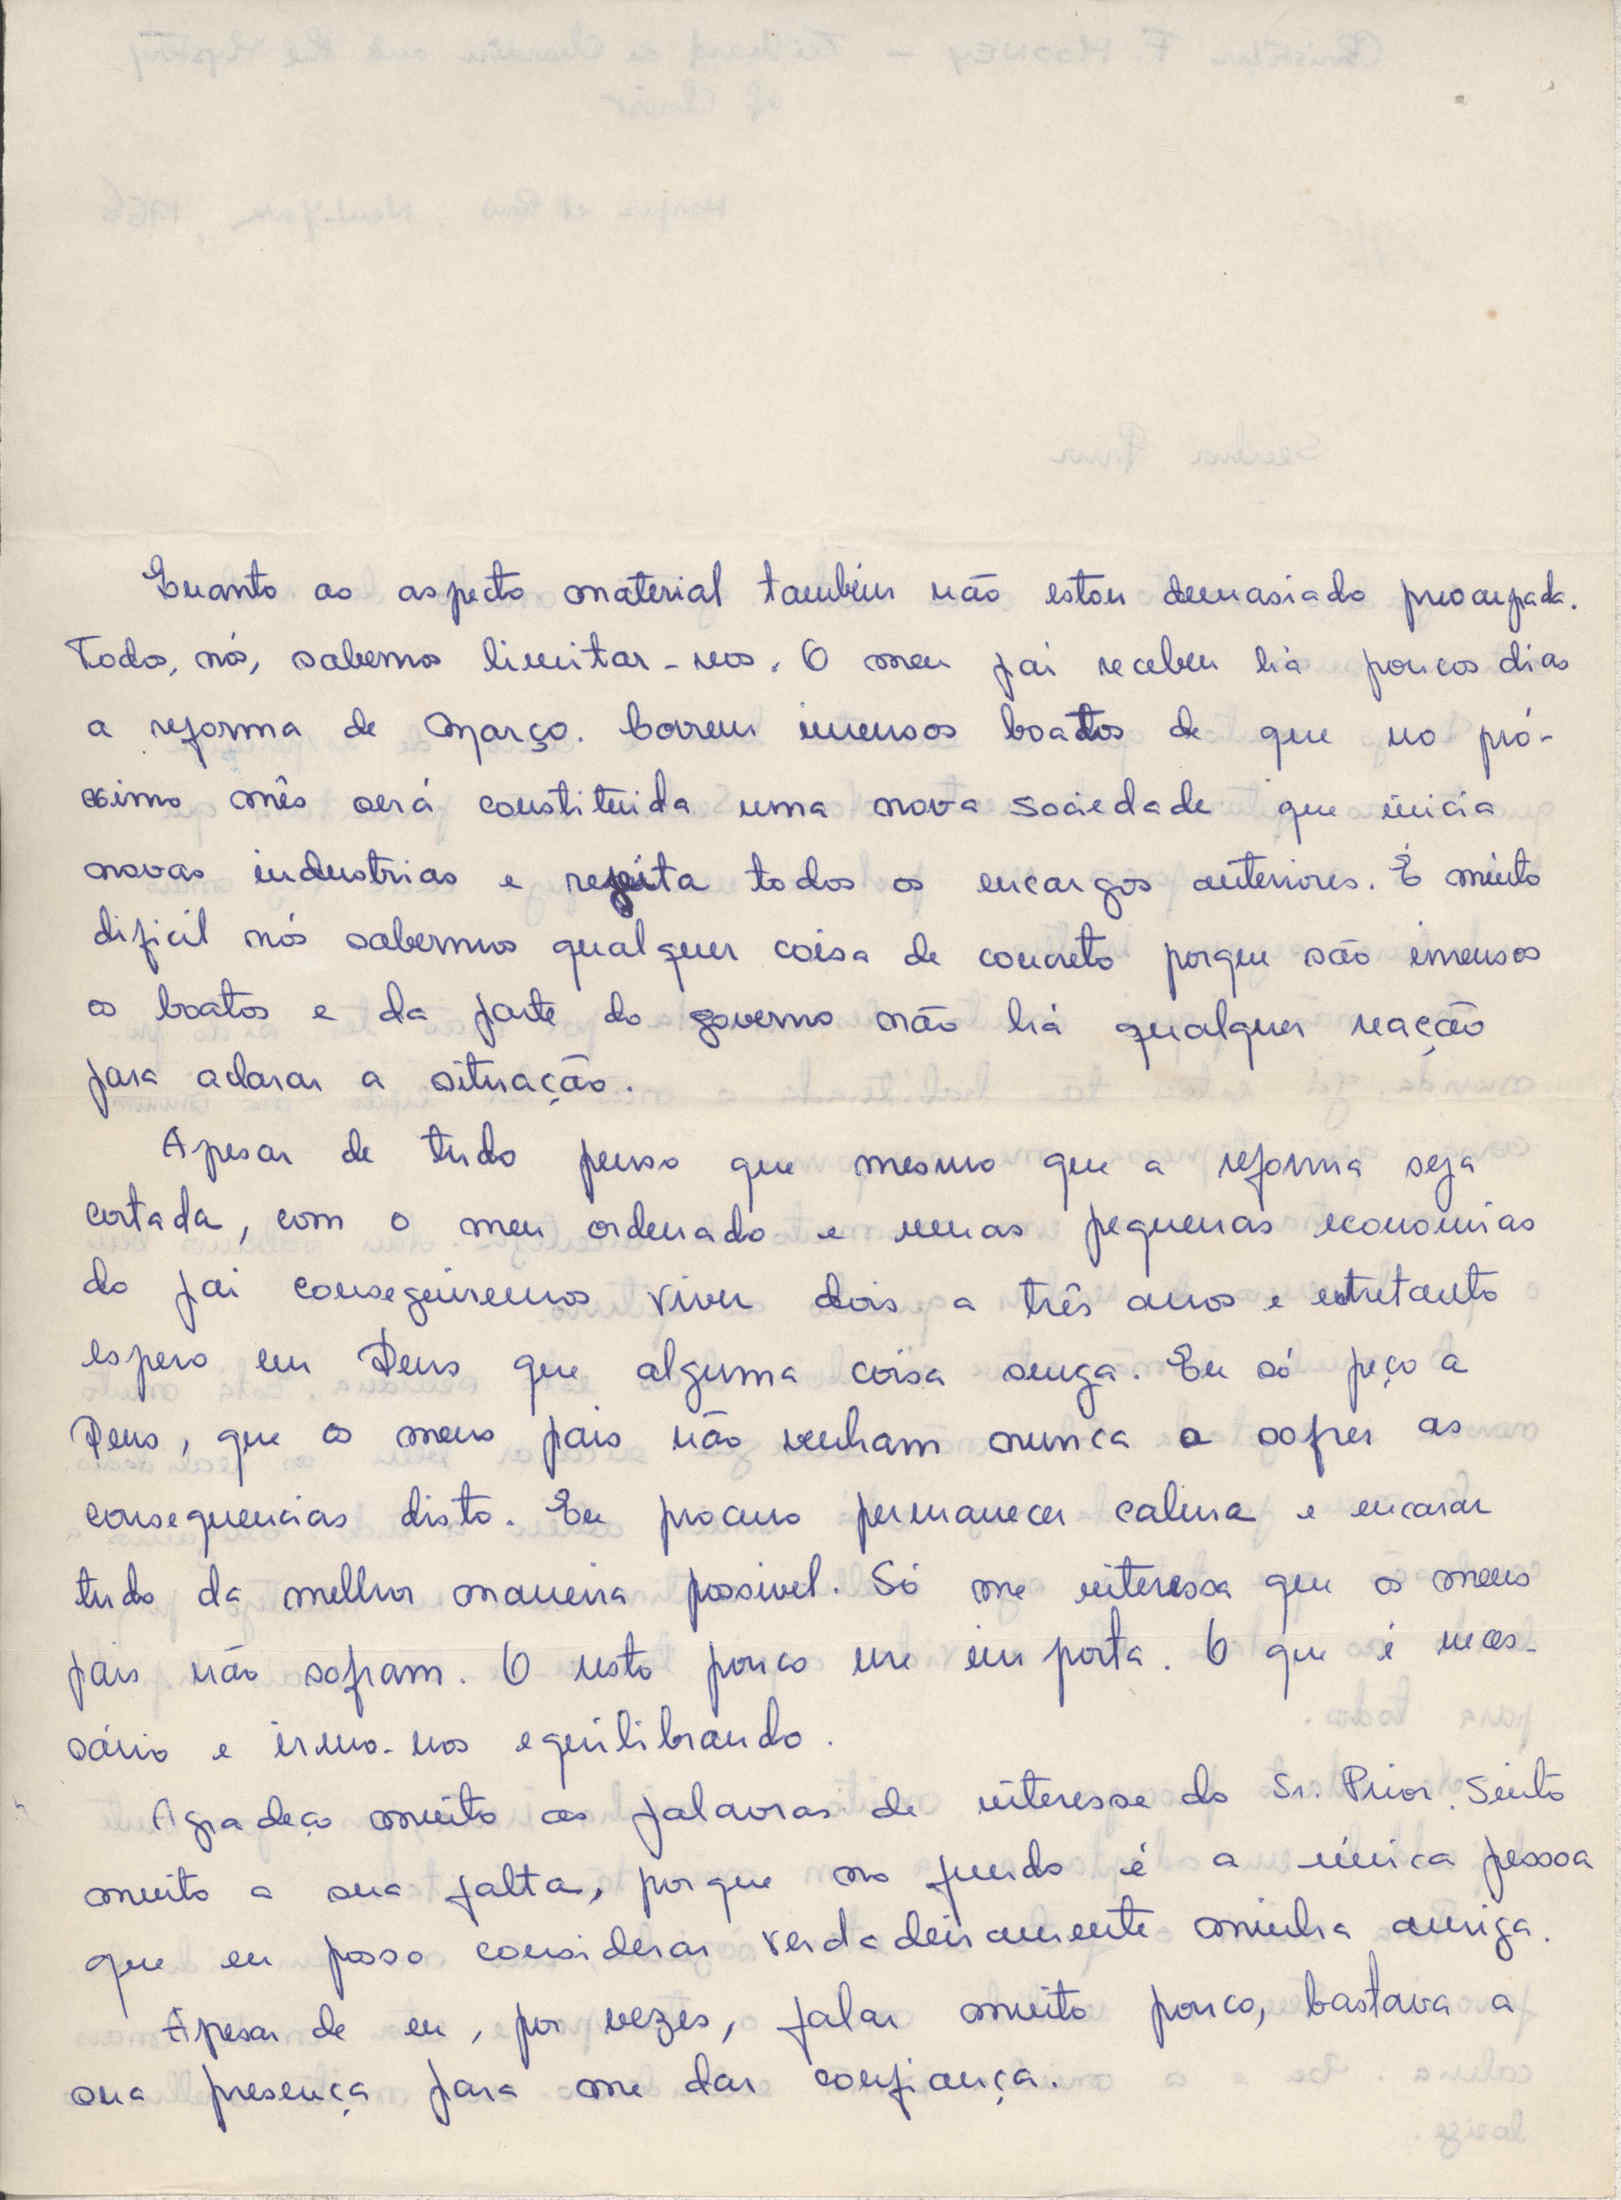 Quanto ao aspecto material também não estou demasiado preocupada.
Todos, nós, sabemos limitar-nos. O meu pai recebeu há poucos dias
a reforma de Março. Correm imensos boatos de que no pró-
ximo mês será constituida uma nova sociedade que inicia
novas industrias e rejeita todos os encargos anteriores. É muito
dificil nós sabermos qualquer coisa de concreto porque são imensos
os boatos e da parte do governo não há qualquer reacção
para aclarar a situação.
Apesar de tudo penso que mesmo que a reforma seja
cortada, com o meu ordenado e umas pequenas economias
do pai conseguiremos viver dois a três anos e entretanto
espero em Deus que alguma coisa surga. Eu só peço a
Deus, que os meus pais não venham nunca a sofrer as
consequencias disto. Eu procuro permanecer calma e encarar
tudo da melhor maneira possivel. Só me interessa que os meus
pais não sofram. O resto pouco me importa. O que é neces-
sário e irmo-nos equilibrando.
Agradeço muito as palavras de interesse do Sr. Prior. Sinto
muito a sua falta, porque no fundo é a única pessoa
que eu posso considerar verdadeiramente minha amiga.
Apesar de eu, por vezes, falar muito pouco, bastava a
sua presença para me dar confiança.